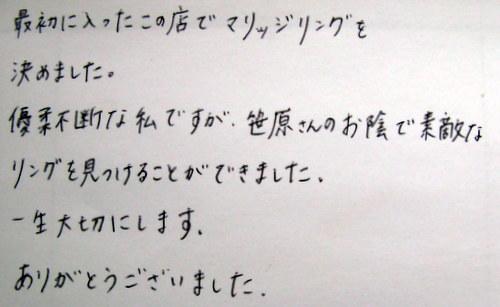 最初に入ったこの店でマリッジリングを
決めました。
優柔不断な私ですが、笹原さんのお陰で素敵な
リングを見つけることができました。
一生大切にします。
ありがとうございました。